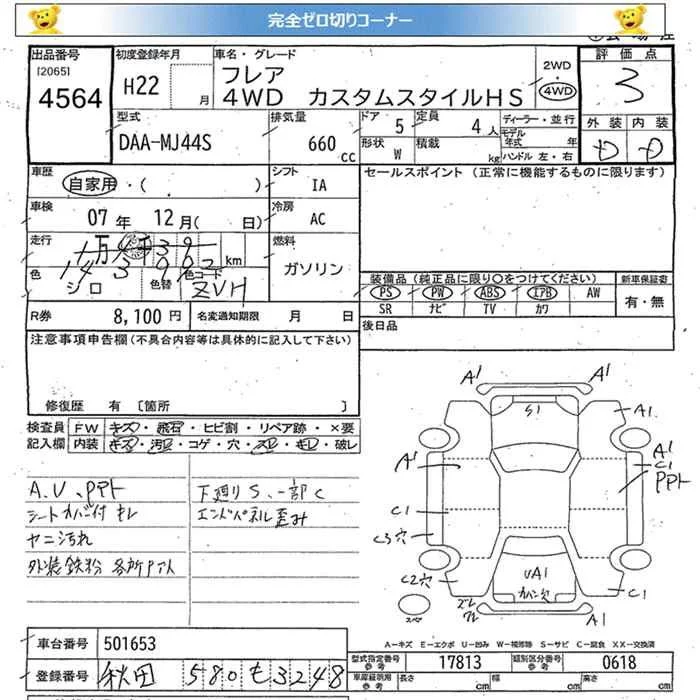 完全ゼロ切りコーナー
出品番号 初度登録年月 車名・グレード 評価点
[2065] 4564 H22 月 フレア 2WD 3
4WD カスタムスタイルHS 4WD
型式 排気量 ドア 5 定員 4人 ディーラー・並行 外装 内装
DAA-MJ44S 660cc 形状 W 積載 kg モデル年式 年 D D
ハンドル 左・右
車歴 自家用・( ) シフト IA セールスポイント (正常に機能するものに限ります)
車検 07年 12月( 日) 冷房 AC
走行 km 燃料 ガソリン
143902
色 シロ 色替 色コード ZVH
装備品 (純正品に限り○をつけてください) 新車保証書
PS PW ABS IAB AW 有・無
SR ナビ TV カワ
R券 8,100円 名変通知期限 月 日 後日品
注意事項申告欄 (不具合内容等は具体的に記入して下さい)
修復歴 有 〔箇所 〕
検査員記入欄 FW キズ・飛石・ヒビ割・リペア跡・×要
内装 キズ・汚レ・コゲ・穴・スレ・キレ・破レ
A.U、PPト 下廻りS、一部C
シートカバー付 モレ エンドパネル歪み
ヤニ汚れ
外装鉄粉 各所
A1 A1
S1 A1
A1 A1 C1 PPト
C1
C3穴
C2穴 UA1 カバー欠 C1
A1
スペア
A-キズ E-エクボ U-凹み W-補修跡 S-サビ C-腐食 XX-交換済
車台番号 501653
型式指定番号 参考 17813 類別区分番号 参考 0618
登録番号 秋田 580 も 3248
車庫証明用 参考 長さ cm 幅 cm 高さ cm